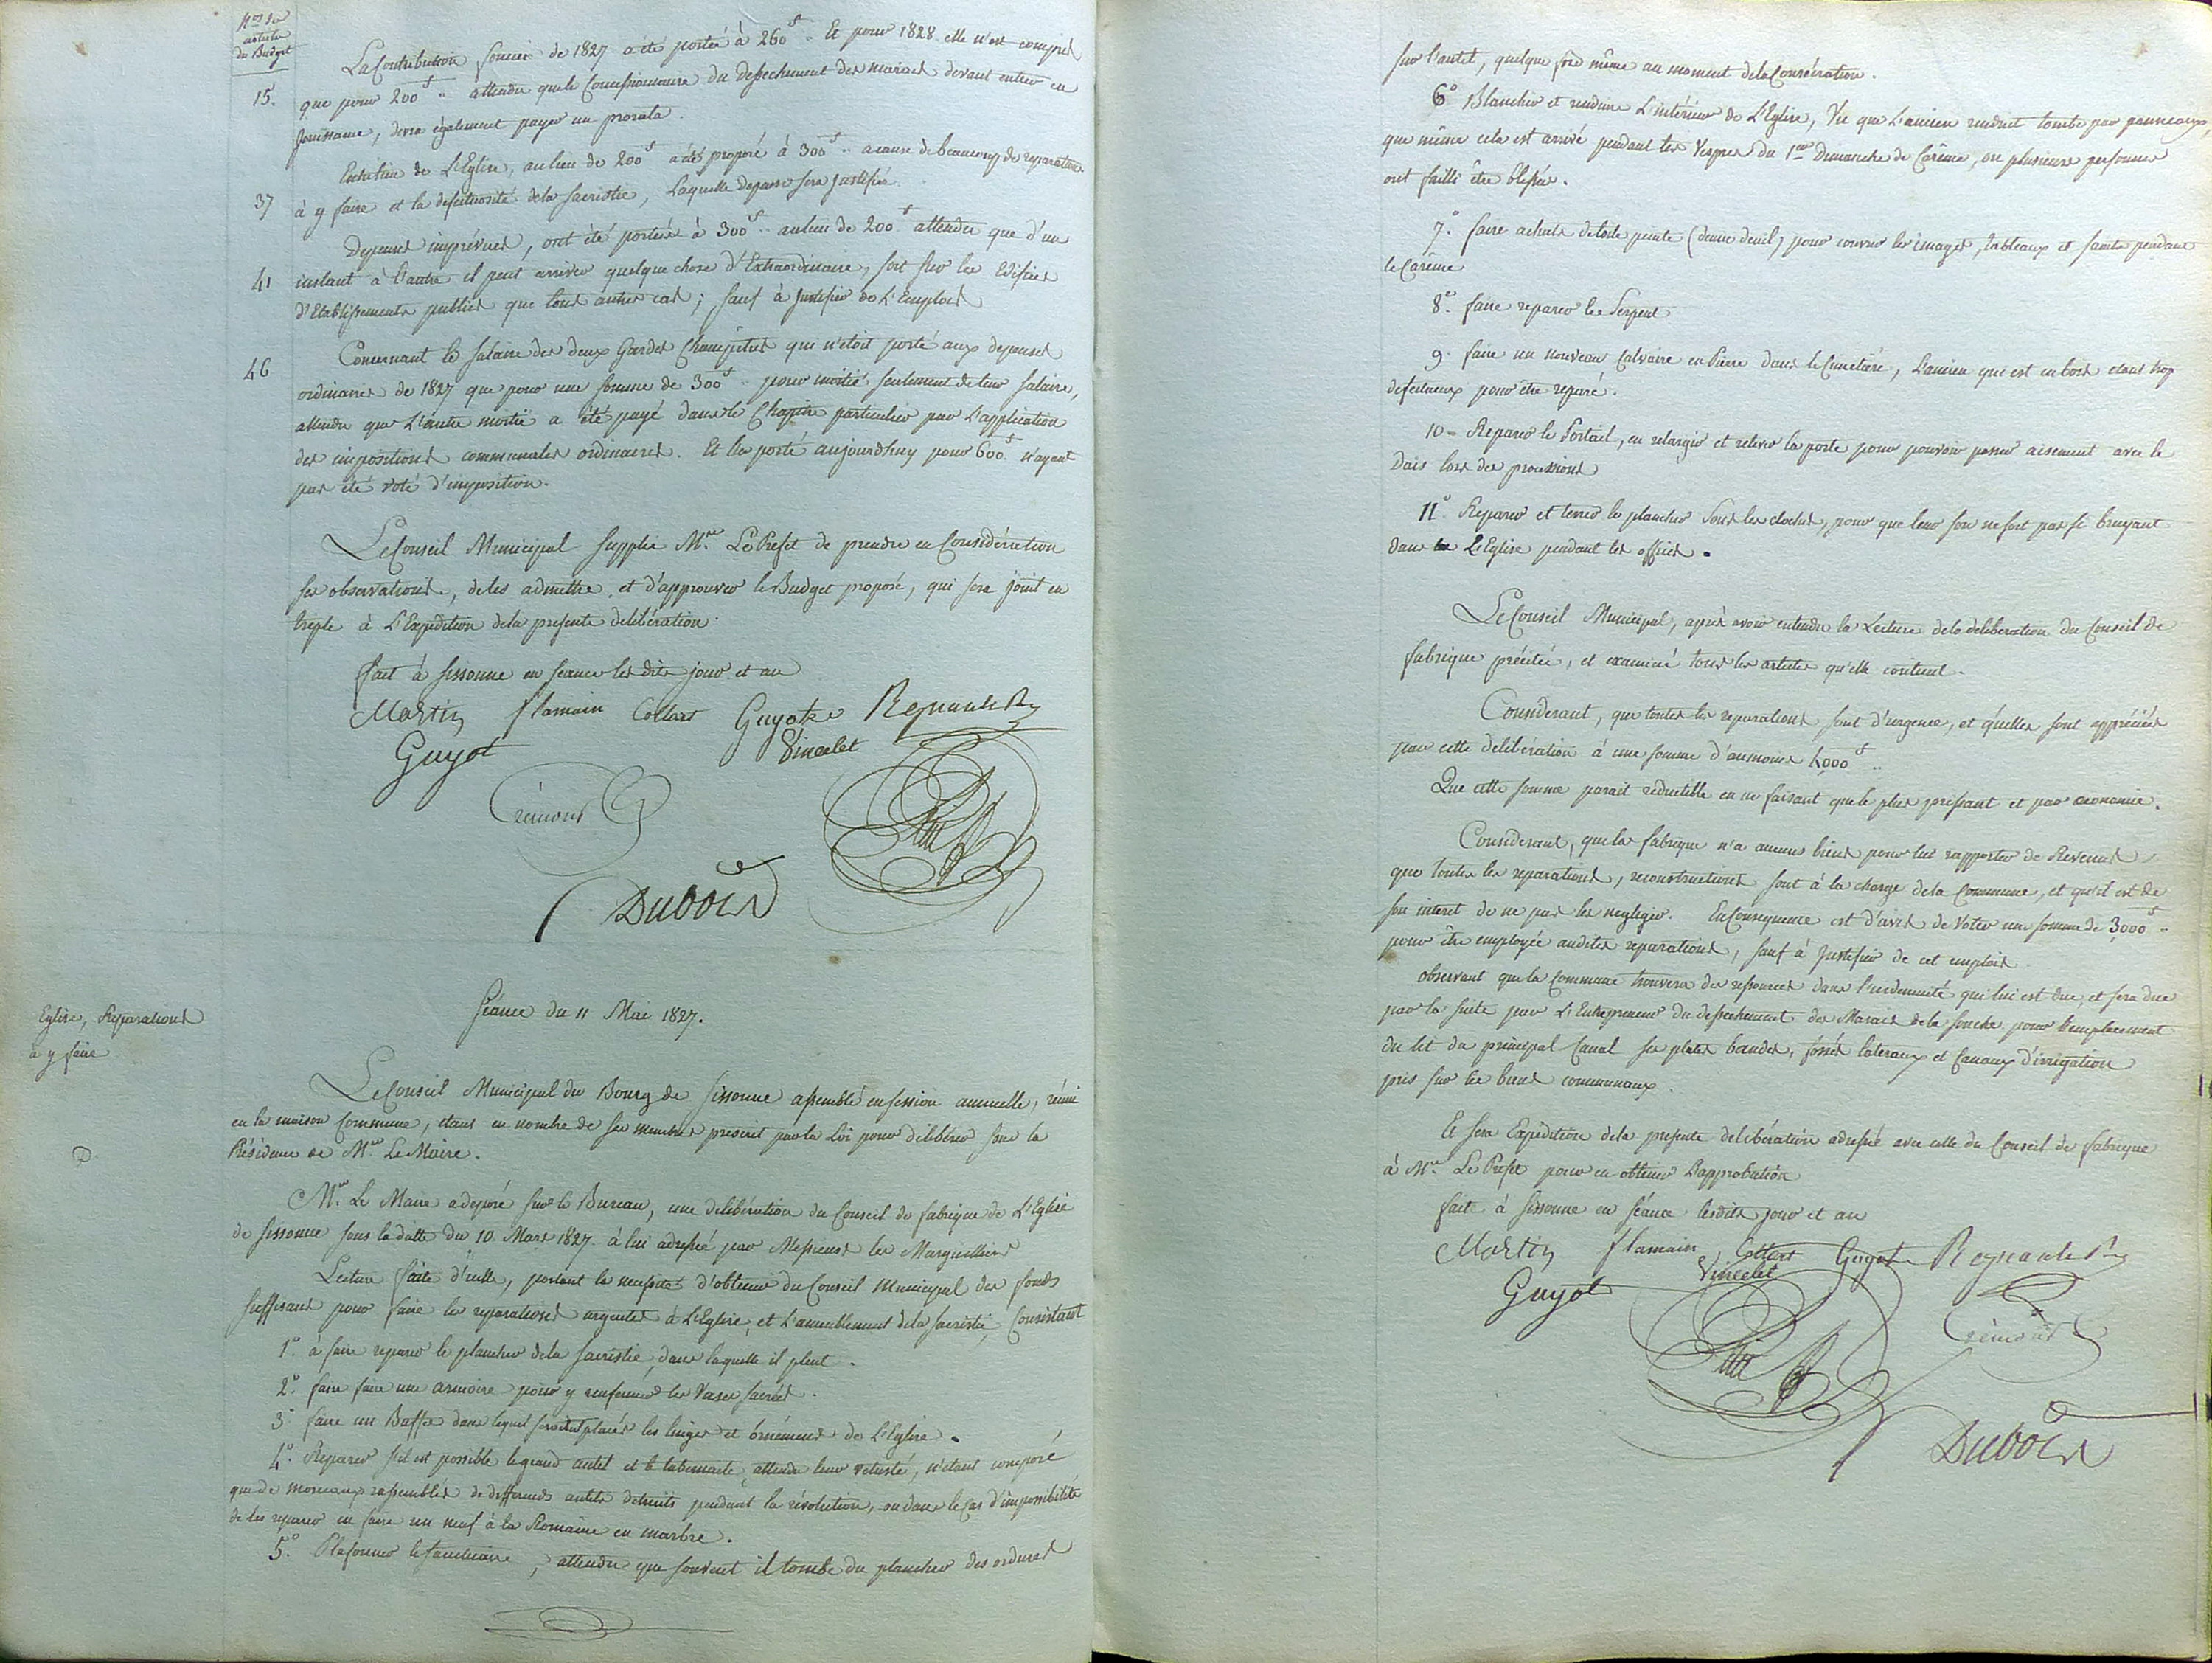 Nos des
articles
du Budget
La Contribution foncier de 1827 a été portée à 260f .. Et pour 1828 elle n'est compris
15. que pour 200f .. attendu que le Concessionnaire du dessechement des marais devant entrer en
Jouissance, devra également payer un prorata.
Entretien de L'Eglise, au lieu de 200f a été proposé à 300f .. a cause de beaucoup de reparations
37 à y faire et la defectuosité de la sacristie, Laquelle depense sera justifiée.
Depenses imprévues, ont été portées à 300f .. au lieu de 200f attendu que d'un
41 instant à l'autre il peut arriver quelque chose d'Extraordinaire, soit sur les Edifices
d'Etablissements publics que tous autres cas ; sauf à justifier de L'Emplois
46 Concernant le salaire des deux Gardes Champêtres qui n'étoit porté aux depenses
ordinaires de 1827 que pour une somme de 300f .. pour moitié seulement de leur salaire,
attendu que L'autre moitié a été payé dans le Chapitre particulier par L'application
des impositions communales ordinaires. Et les porté aujourdhuy pour 600f n'ayant
pas été voté d'imposition.
Le Conseil Municipal supplie Mr. Le Prefet de prendre en Considération
ses observations, de les admettre, et d'approuver le Budget proposé, qui sera joint en
triple à L'Expédition de la presente delibération.
fait à sissonne en seance les dits jour et an
Martin flamain Collart Guyot Regnault
Guyot Vincelet
Crémont
Dubois
Séance du 11 Mai 1827.
Eglise, Reparations
à y faire
Le Conseil Municipal du Bourg de Sissonne assemblé en session annuelle, réuni
en la maison Commune, étant en nombre de ses membres prescrit par la Loi pour délibérer sous la
Présidence de Mr. Le Maire.
Mr. Le Maire a déposé sur le Bureau, une delibération du Conseil de fabrique de L'Eglise
de sissonne sous la datte du 10 Mars 1827 à lui adressé par Messieurs les Marguilliers
Lecture faite d'icelle, portant la necessité d'obtenir du Conseil Municipal des fonds
suffisans pour faire les reparations urgentes à L'Eglise, et L'ameublement de la sacristie, Consistant
1° à faire reparer le plancher de la sacristie, dans laquelle il pleut.
2° faire faire une armoire pour y renfermer les Vases sacrés.
3° faire un Buffet dans lequel seroient placés les linges et ornémens de L'Eglise.
4° Reparer s'il est possible le grand autel et le tabernacle, attendu leur vetusté, n'étant composé
que de morceaux rassemblés de differends autels detruits pendant la révolution, ou dans le cas d'impossibilité
de les reparer en faire un neuf à la Romaine en marbre.
5° Plafonner le sanctuaire, attendu que souvent il tombe du plancher des ordures
sur l'autel, quelque fois même au moment de la Consécration.
6° Blanchir et enduire L'intérieur de L'Eglise, Vu que L'ancien enduit tombe par panneaux
que même cela est arrivé pendant les Vespres du 1er Dimanche de Carême, ou plusieurs personnes
ont failli être blessées.
7° faire achats de toile peinte (demi deuil) pour couvrir les images, tableaux et saints pendant
le Carême
8° faire reparer le Serpent
9° faire un nouveau Calvaire en Pierre dans le Cimetière, L'ancien qui est en bois etant trop
defectueux pour être reparé.
10 - Reparer le Portail, en relargir et relever la porte pour pouvoir passer aisement avec le
Dais lors des processions
11° Reparer et terrer le plancher sous les cloches, pour que leur son ne soit pas si bruyant
dans L'Eglise pendant les offices.
Le Conseil Municipal, après avoir entendu la Lecture de la deliberation du Conseil de
fabrique précitée, et examiné tous les articles qu'elle contient.
Considerant, que toutes les reparations sont d'urgence, et qu'elles sont appréciées
par cette delibération à une somme d'aumoins 4,000f ..
Que cette somme parait réductible en ne faisant que le plus pressant et par œconomie.
Considerant, que la fabrique n'a aucuns biens pour lui rapporter de Revenus
que toutes les reparations, reconstructions sont à la charge de la Commune, et qu'il est de
son interet de ne pas les negliger. En Consequence est d'avis de Voter une somme de 3,000f ..
pour être employée audites reparations, sauf à justifier de cet emplois
observant que la Commune trouvera des ressources dans l'indemnité qui lui est due, et sera due
par la suite par L'Entrepreneur du dessechement des Marais de la souche pour l'emplacement
du lit du principal Canal ses plates bandes, fossés lateraux et Canaux d'irrigation
pris sur les biens communaux.
Et sera Expédition de la presente delibération adressée avec celle du Conseil de fabrique
à Mr. Le Prefet pour en obtenir L'approbation
faite à sissonne en séance lesdits jour et an
Martin flamain Collart Guyot Regnault
Vincelet
Guyot Crémont
Dubois